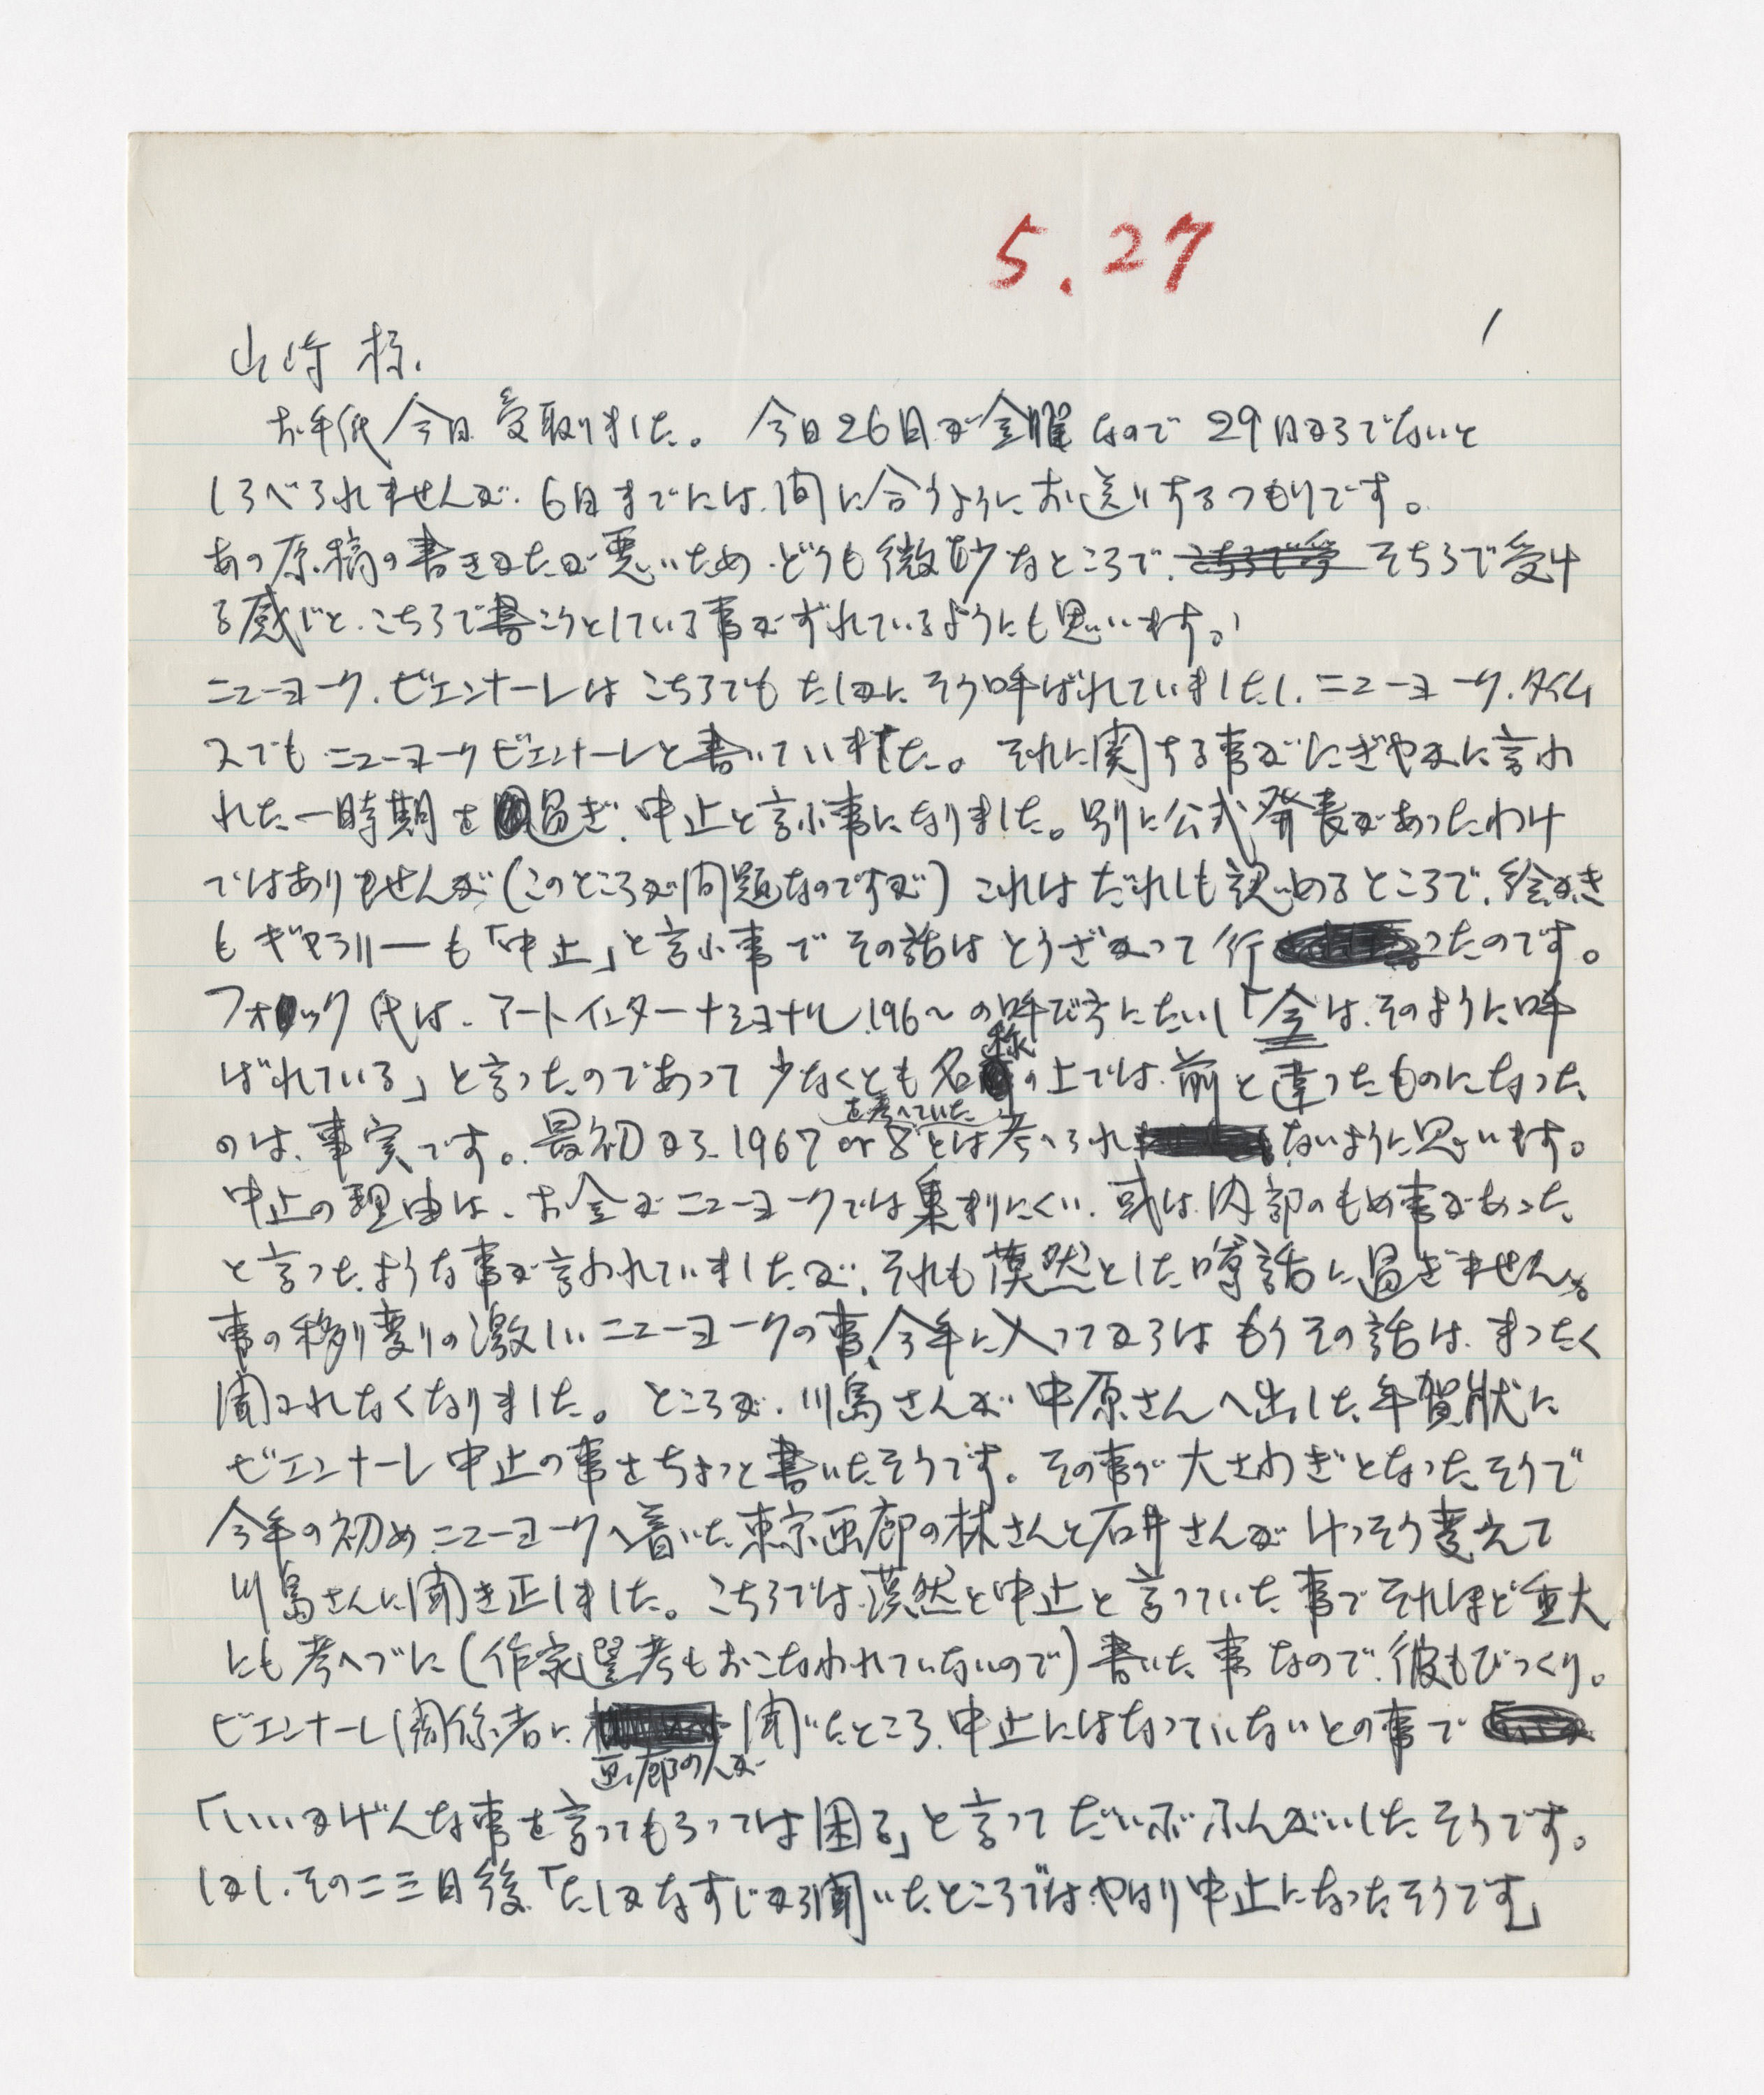 5.27
1
山崎様.
お手紙今日受取りました。今日26日が金曜なので29日からでないと
しらべられませんが、6日までには、間に合うようにお送りするつもりです。
あの原稿の書きかたが悪いため、どうも微妙なところで、こちらで受 そちらで受け
る感じと、こちらで書こうとしている事がずれているようにも思います。
ニューヨーク、ビエンナーレはこちらでもたしかにそう呼ばれていましたし、ニューヨーク、タイム
スでもニューヨークビエンナーレと書いていました。それに関する事がにぎやかに言わ
れた一時期を過ぎ、中止と言ふ事になりました。別に公式発表があったわけ
ではありませんが(このところが問題なのですが)これはだれしも認めるところで、絵かき
もギャラリーも「中止」と言ふ事でその話はとうざかって行ったのです。
フォック氏は、アートインターナショナル、196〜の呼び方にたいし「今は、そのように呼
ばれている」と言ったのであって少なくとも名称の上では、前と違ったものになった
のは、事実です。最初から、1967 or 8を考へていたとは考へられないように思います。
中止の理由は、お金がニューヨークでは集りにくい、或は、内部のもめ事があった
と言ったような事が言われていましたが、それも漠然とした噂話に過ぎません。
事の移り変りの激しいニューヨークの事、今年に入ってからはもうその話は、まったく
聞かれなくなりました。ところが、川島さんが中原さんへ出した年賀状に
ビエンナーレ中止の事をちょっと書いたそうです。その事が大さわぎとなったそうで
今年の初めニューヨークへ着いた東京画廊の林さんと石井さんがけっそう変えて
川島さんに聞き正しました。こちらでは漠然と中止と言っていた事でそれほど重大
にも考へづに(作家選考もおこなわれていないので)書いた事なので、彼もびっくり。
ビエンナーレ関係者に画廊の人が聞いたところ、中止にはなっていないとの事で
「いいかげんな事を言ってもらっては困る」と言ってだいぶふんがいしたそうです。
しかし、その二三日後「たしかなすじから聞いたところではやはり中止になったそうです」